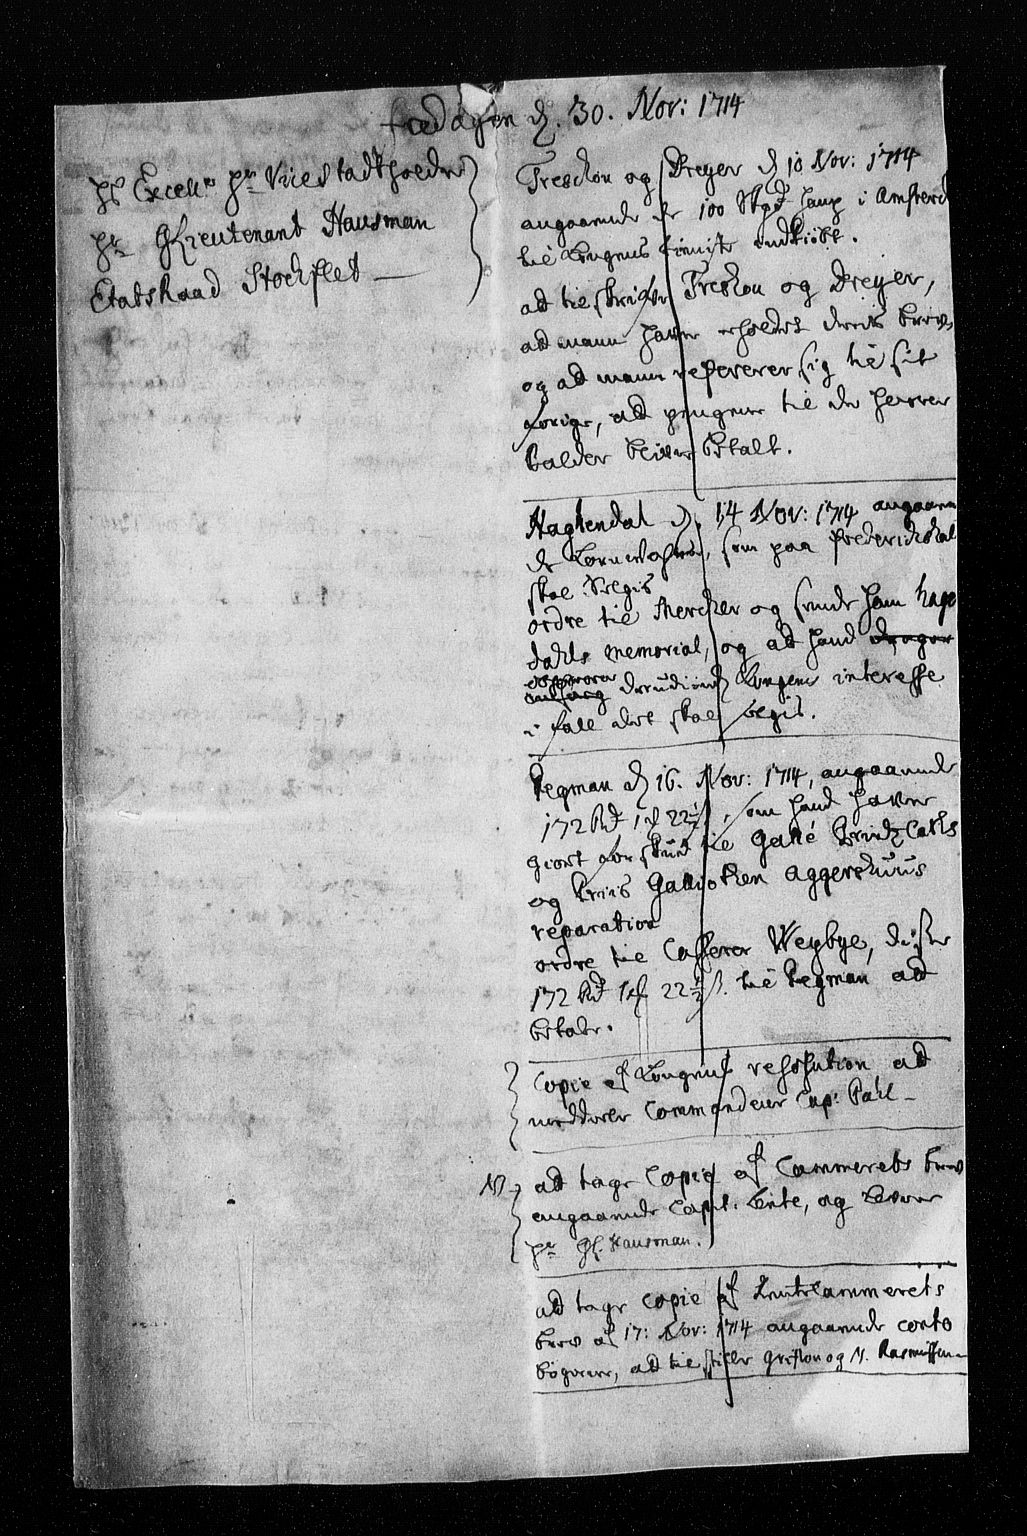 fredagen d. 30. Nov: 1714
Hs Excell. Hr Vice Stadtholder
Hr GLieutenant Hausman
Etatsraad Stockflet
Treschou og Dreyer d 10 Nov: 1714
angaaende de 100 Skpd hamp i Amsterd
til Kongens tieniste indkiøbt.
ad tilskrifve Treschou og Dreyer,
ad mand hafver erholdet deris brev,
og ad mand refererer sig til sit
forige, ad pengene til de herrer
Balder bliver betalt.
Hagkendal d. 14 Nov: 1714 angaaen
de Korn , som paa Friderichshal
skal
ordre til Mercker og sende ham hage
dahls memorial, og ad hand
observerer derudinde Kongens interesse
i fall det skal
Pegman d 16. Nov: 1714, angaaende
172 Rd 1 ß 22½ ß, som hand hafver
giort forskud til Galle Printz Carls
og Galliothen Aggershuus
reparation
ordre til Casserer Weybye, disse
172 Rd 1 ß 22½ ß. til Pegman ad
betale.
Copie af Kongens resolution ad
meddeele Commandeur Cap: Pahl
NB ad tage Copie af Cammerets brev
angaaende Capt. , og levere
Hr Gl. Hausman.
ad tage Copie af Rentecammerets
brev af 17: Nov: 1714 angaaende conto
bøgerne, ad tilstille og N. Rasmussen